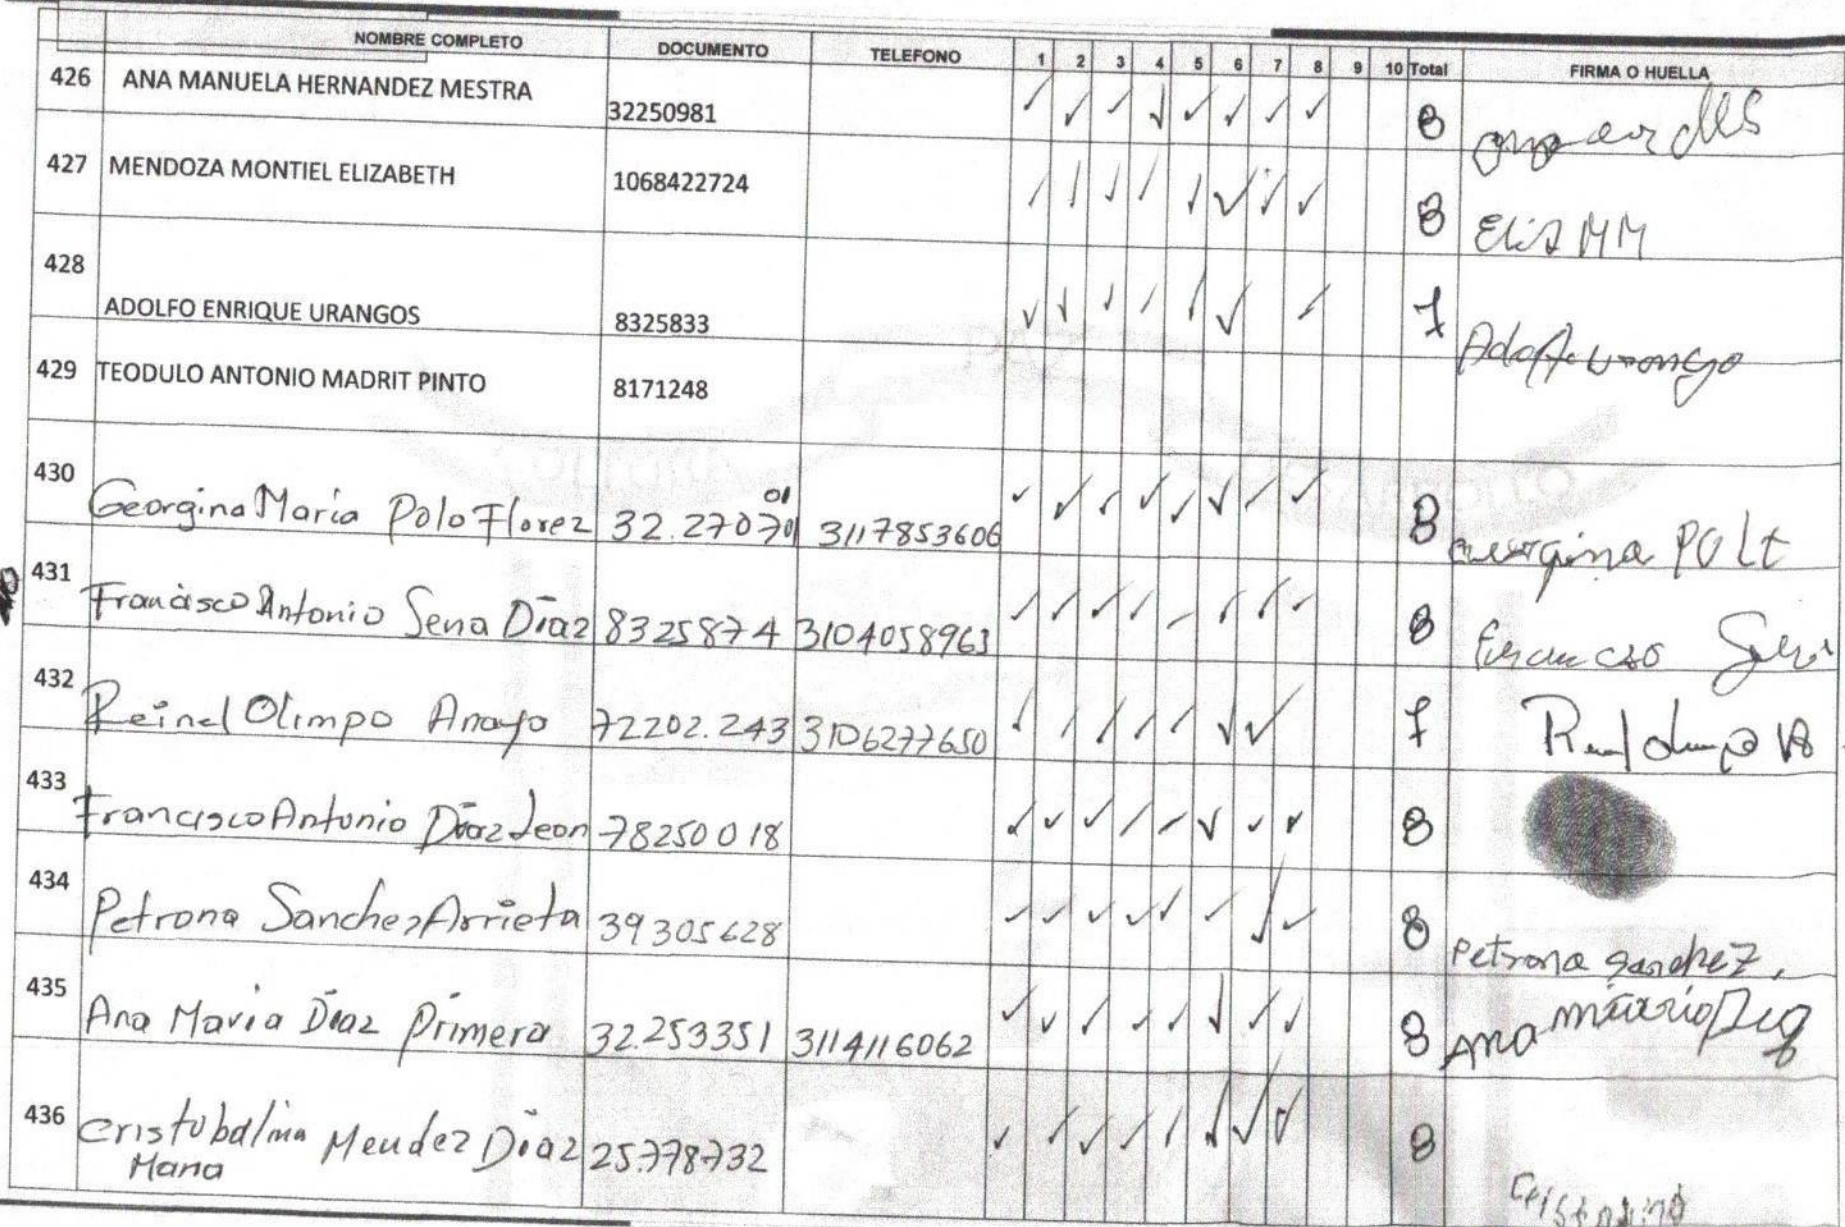 NOMBRE COMPLETO DOCUMENTO TELEFONO 1 2 3 4 5 6 7 8 9 10 Total FIRMA O HUELLA
426 ANA MANUELA HERNANDEZ MESTRA 32250981 ✓ ✓ ✓ ✓ ✓ ✓ ✓ ✓ 8
427 MENDOZA MONTIEL ELIZABETH 1068422724 ✓ ✓ ✓ ✓ ✓ ✓ ✓ ✓ 8 Elis MM
428 ADOLFO ENRIQUE URANGOS 8325833 ✓ ✓ ✓ ✓ ✓ ✓ ✓ 7
429 TEODULO ANTONIO MADRIT PINTO 8171248
430 Georgina Maria Polo Florez 32.27070 01 3117853606 ✓ ✓ ✓ ✓ ✓ ✓ ✓ ✓ 8
431 Francisco Antonio Sena Diaz 8325874 3104058963 ✓ ✓ ✓ ✓ ✓ ✓ ✓ ✓ 8
432 Reinel Olimpo Anayo 72202.243 3106277650 ✓ ✓ ✓ ✓ ✓ ✓ ✓ 7
433 Francisco Antonio Diaz Leon 78250018 ✓ ✓ ✓ ✓ ✓ ✓ ✓ ✓ 8
434 Petrona Sanchez Arrieta 39305628 ✓ ✓ ✓ ✓ ✓ ✓ ✓ ✓ 8 Petrona Sanchez.
435 Ana Maria Diaz Primera 32.253351 3114116062 ✓ ✓ ✓ ✓ ✓ ✓ ✓ ✓ 8 Ana
436 Cristobalina Mendez Diaz 25.778732 ✓ ✓ ✓ ✓ ✓ ✓ ✓ ✓ 8
Maria